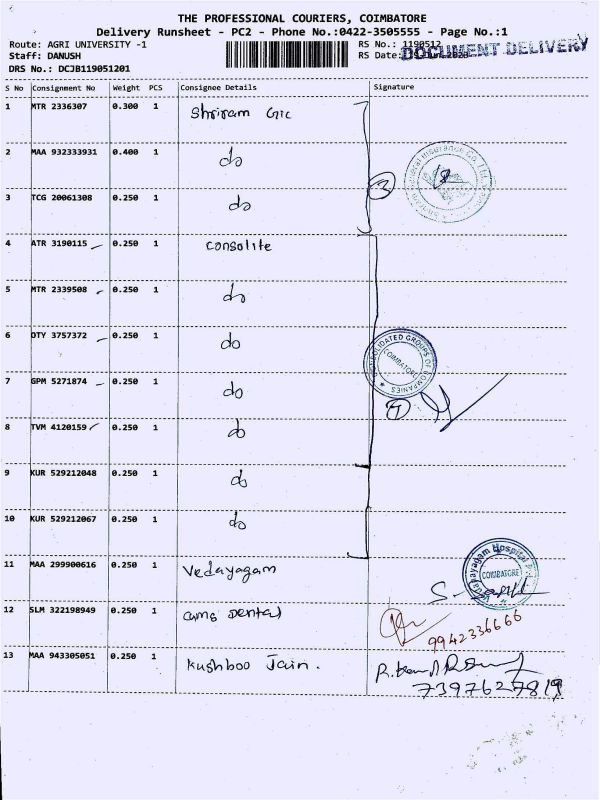 THE PROFESSIONAL COURIERS, COIMBATORE
Delivery Runsheet - PC2 - Phone No.:0422-3505555 - Page No.:1
Route: AGRI UNIVERSITY -1 RS No.: 1190512
Staff: DANUSH RS Date:
DOCUMENT DELIVERY
DRS No.: DCJB119051201
S No Consignment No Weight PCS Consignee Details Signature
1 MTR 2336307 0.300 1 Shriram GIC
2 MAA 932333931 0.400 1 do
3 TCG 20061308 0.250 1 do
3
4 ATR 3190115 0.250 1 Consolite
5 MTR 2339508 0.250 1 do
6 DTY 3757372 0.250 1 do
CONSOLIDATED GROUPS OF COMPANIES
COIMBATORE
7 GPM 5271874 0.250 1 do
7
8 TVM 4120159 0.250 1 do
9 KUR 529212048 0.250 1 do
10 KUR 529212067 0.250 1 do
11 MAA 299900616 0.250 1 Vedayagam
Hospital
COIMBATORE
12 SLM 322198949 0.250 1 cums Dental
9942336666
13 MAA 943305051 0.250 1 Kushboo Jain.
7397627819